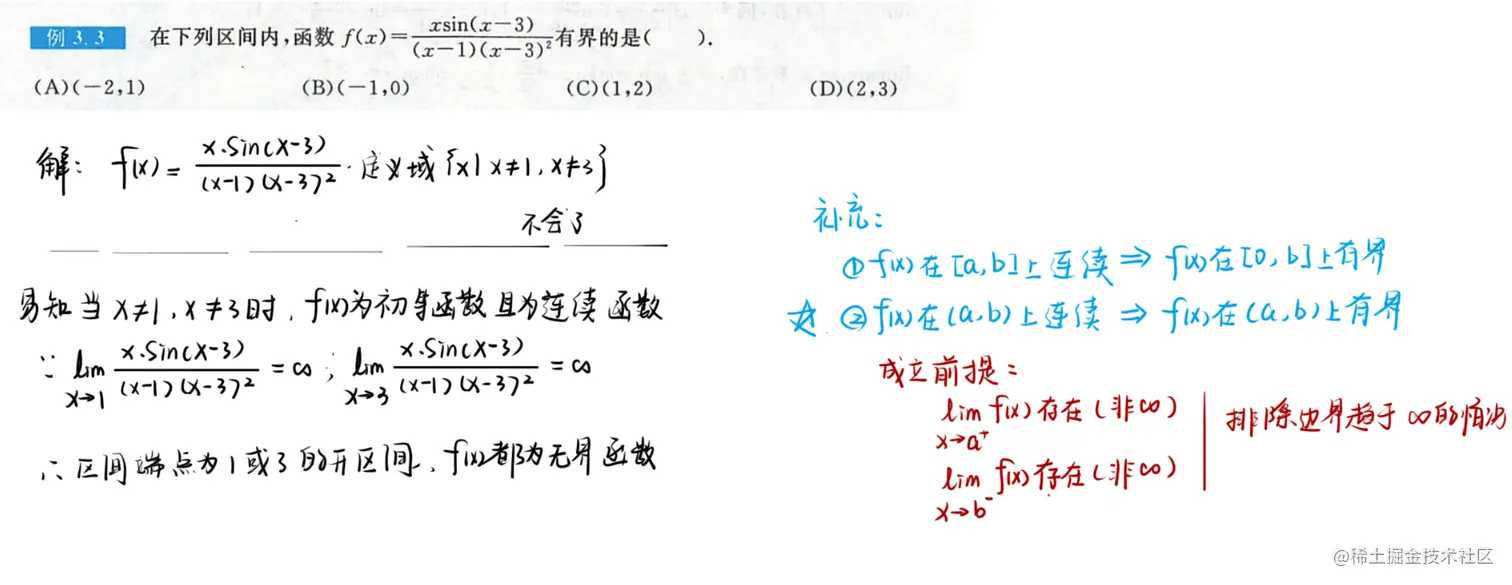 例 3.3 在下列区间内,函数 f(x)=\frac{x\sin(x-3)}{(x-1)(x-3)^2}有界的是( ).
(A)(-2,1) (B)(-1,0) (C)(1,2) (D)(2,3)
解: f(x)=\frac{x·Sin(x-3)}{(x-1)(x-3)^2}. 定义域{x| x≠1, x≠3}
不会了
易知当 x≠1, x≠3时, f(x)为初等函数且为连续函数
∵ \lim_{x→1} \frac{x·Sin(x-3)}{(x-1)(x-3)^2} = ∞; \lim_{x→3} \frac{x·Sin(x-3)}{(x-1)(x-3)^2} = ∞
∴ 区间端点为1或3的开区间, f(x)都为无界函数
补充:
①f(x)在[a,b]上连续 ⇒ f(x)在[0,b]上有界
☆ ②f(x)在(a,b)上连续 ⇒ f(x)在(a,b)上有界
成立前提:
\lim_{x→a^+} f(x)存在(非∞)
\lim_{x→b^-} f(x)存在(非∞)
排除边界趋于∞的情况
@稀土掘金技术社区